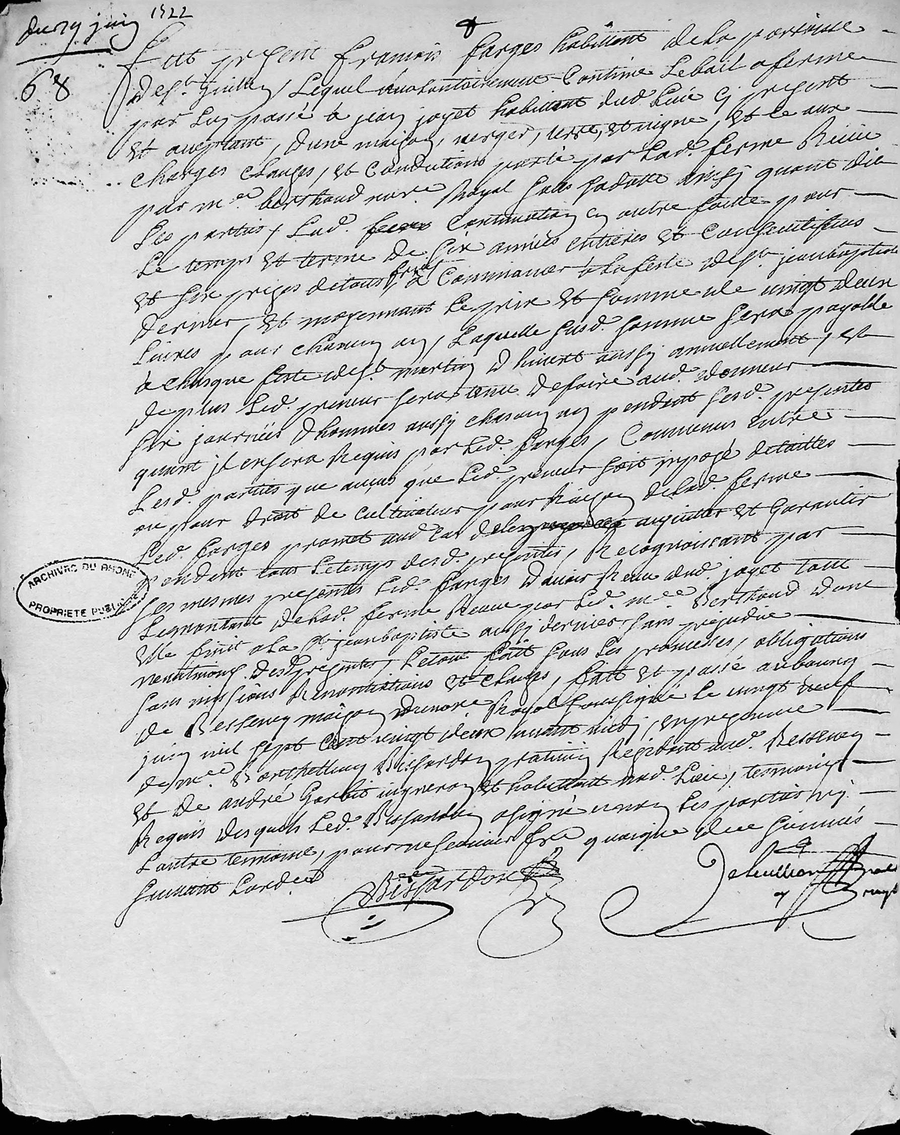 du 29 juin 1722
8
68
fut present francois farges habittant de la parroisse
de st Lequel vollontairement continue Le bail a ferme
par Luy passé a jean joyet habittant dud Lieu cy present
et aceptant, dune maison, verger, terre, et vigne, et ce aux
charges clauses, et conditions porté par Lad. ferme Receu
par me berthaud nore Royal sans datte ainsy quont dit
Les parties, Lad. continuation en outre faitte pour
Le temps et terme de six années entieres et consecutifves
et six prizes de tous fruits a commancer a la feste de st jean baptiste
dernier, et moyennant Le prix et somme de vingt deux
Livres pour chascun an, Laquelle susd. somme sera payable
a chasque feste de st martin d'hivert aussy annuellement, et
de plus Led. preneur sera tenu de faire aud. donneur
six journées d'hommes aussy chascun an pendant Lesd. presentes
quant il en sera Requis par Led. farges, convenus entre
Lesd. parties que aucas que Led. preneur soit imposé detailles
ou pour droit de cultivateur pour Raison de lad. ferme
Led. farges promet aud. cas de len acquitter et Garantir
pendent tous Le temps desd. presentes, Recognoissant par
ces mesmes presentes Led. farges d'avoir Receu dud. joyet tout
Le montant de lad. ferme Receue par Led. me Berthaud dont
elle finit a la st jean baptiste aussy dernier sans prejudice
neantmoins des presentes, Le tout fait sous Les promesses, obligations
sans missions Renontiations et clauses, fait et passé au bourg
de Bessenay maison du nore Royal soussigné Le vingt neuf
juin mil sept cent vingt deux avant midy, en presence
de me Barthellemy Bissardon praticien Resident aud. Bessenay
et de andré vigneron et habittant aud. Lieu, temoins
Requis desquels Led. Bissardon a signé non Les parties ny
Lautre temoins, pour ne scavoir fre quoique de ce sommés
suivant Lord.ce
Bissardon
ARCHIVES DU RHONE
PROPRIETE PUBLIQUE